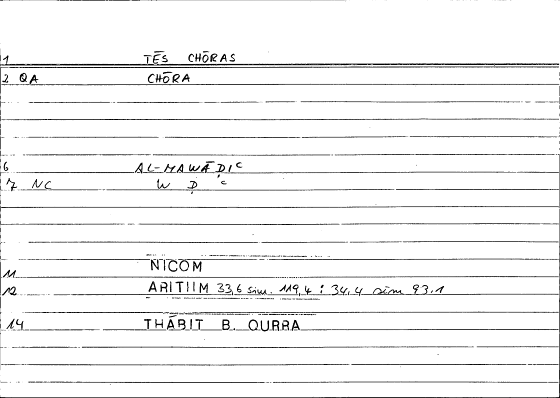 1 TĒS CHŌRAS
2 QA CHŌRA
6 AL-MAWĀḌIʿ
7 NC W Ḍ ʿ
11 NICOM
12 ARITIIM 33,6 sim. 119,4 : 34,4 sim 93.1
14 THĀBIT B. QURRA